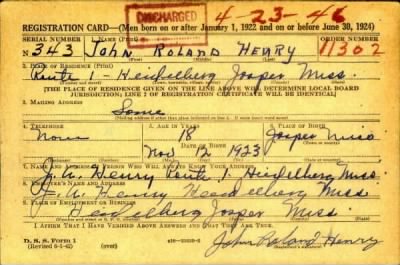 DISCHARGED 4-23-46
REGISTRATION CARD—(Men born on or after January 1, 1922 and on or before June 30, 1924)
SERIAL NUMBER 1. NAME (Print) ORDER NUMBER
N 343 John Roland Henry 11302
2. PLACE OF RESIDENCE (Print)
Route 1 - Heidelberg Jasper Miss.
[THE PLACE OF RESIDENCE GIVEN ON THE LINE ABOVE WILL DETERMINE LOCAL BOARD
JURISDICTION; LINE 2 OF REGISTRATION CERTIFICATE WILL BE IDENTICAL]
3. MAILING ADDRESS
Same
4. TELEPHONE 5. AGE IN YEARS 6. PLACE OF BIRTH
None 18 Jasper
DATE OF BIRTH
Nov 12 1923 Miss
7. NAME AND ADDRESS OF PERSON WHO WILL ALWAYS KNOW YOUR ADDRESS
Henry Route 1 Heidelberg Miss
8. EMPLOYER'S NAME AND ADDRESS
Henry Heidelberg Miss
9. PLACE OF EMPLOYMENT OR BUSINESS
Heidelberg Jasper Miss.
I AFFIRM THAT I HAVE VERIFIED ABOVE ANSWERS AND THAT THEY ARE TRUE.
D. S. S. Form 1
(Revised 6-9-42) (over) John Roland Henry